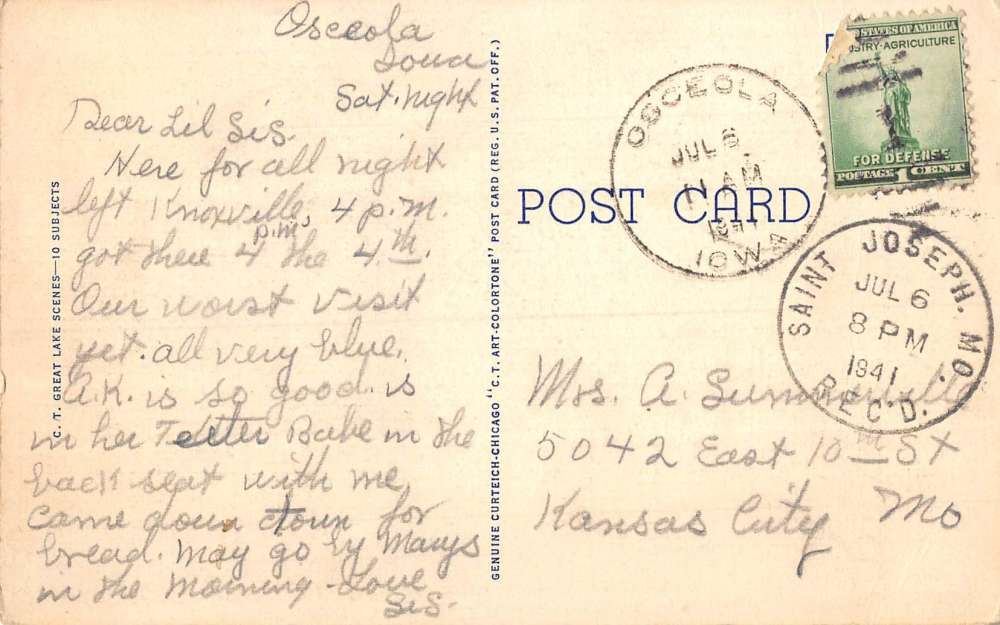 Osceola
Iowa
Sat. night
Dear Lil Sis.
Here for all night
left Knoxville, 4 p.m.
got there 4 p.m. the 4th.
Our worst visit
yet. all very blue.
A.K. is so good. is
in her Teeter Babe in the
back seat with me.
Came down town for
bread. May go by Marys
in the morning Love
Sis.
C. T. GREAT LAKE SCENES—10 SUBJECTS
GENUINE CURTEICH-CHICAGO "C.T. ART-COLORTONE" POST CARD (REG. U.S. PAT. OFF.)
POST CARD
OSCEOLA
JUL 6
11 AM
1941
IOWA
STATES OF AMERICA
INDUSTRY-AGRICULTURE
FOR DEFENSE
POSTAGE 1 CENT
SAINT JOSEPH, MO.
JUL 6
8 PM
1941
REC'D.
Mrs. A. Summerville
5042 East 10th St
Kansas City Mo